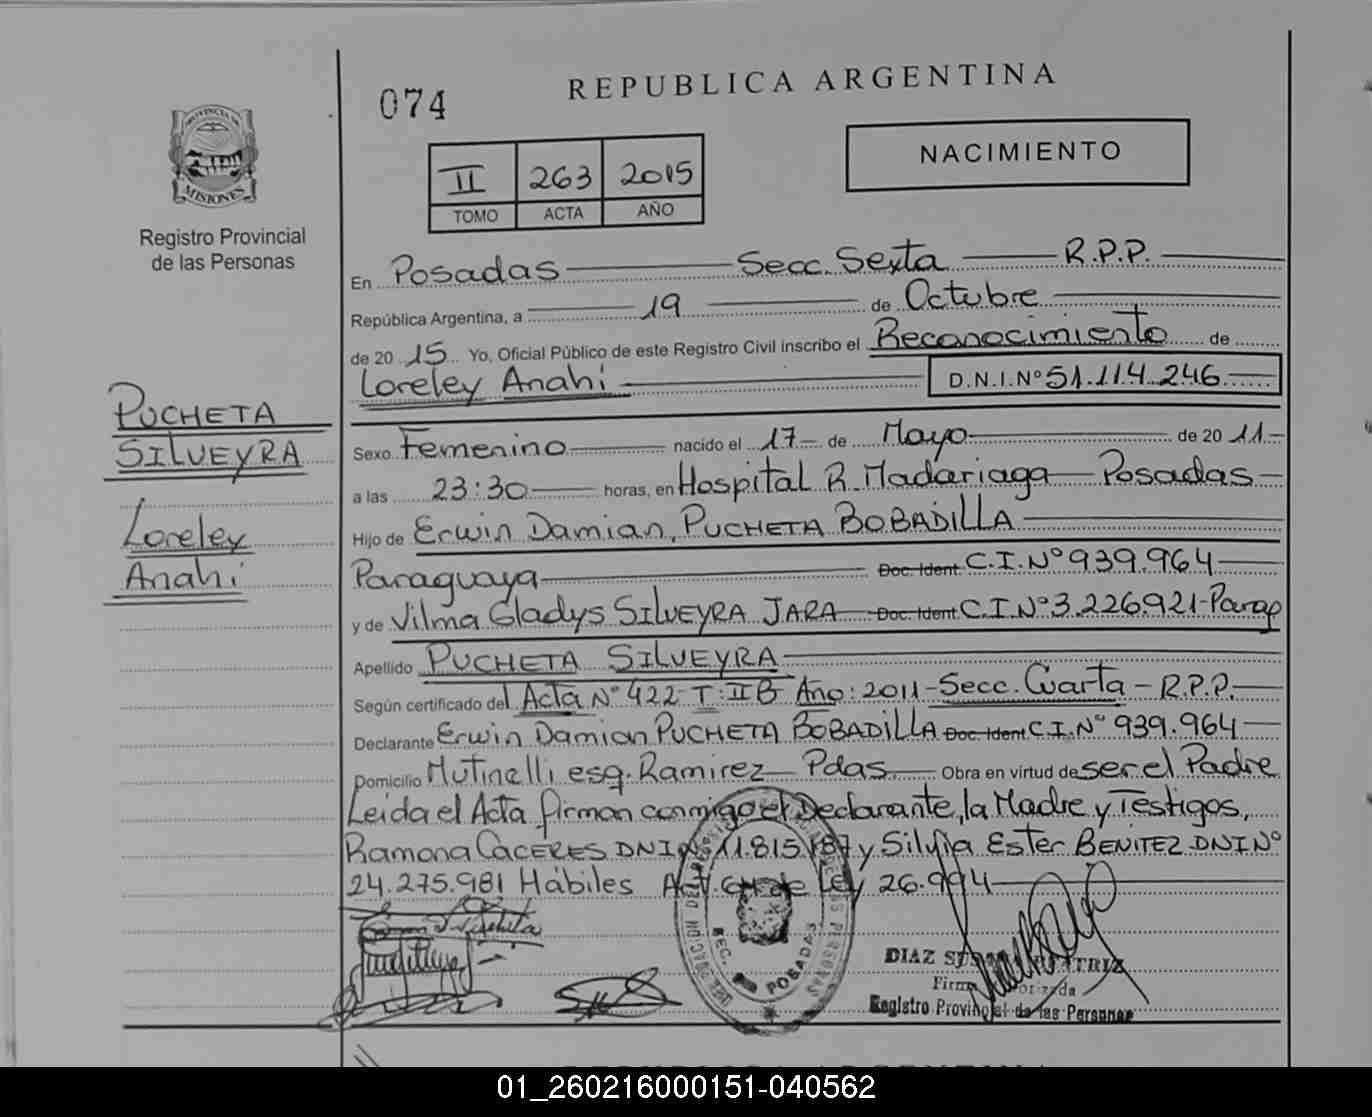 074
REPUBLICA ARGENTINA
NACIMIENTO
II 263 2015
TOMO ACTA AÑO
PROVINCIA DE
MISIONES
Registro Provincial
de las Personas
En Posadas Secc. Sexta R.P.P.
República Argentina, a 19 de Octubre
de 20 15 Yo, Oficial Público de este Registro Civil inscribo el Reconocimiento de
Loreley Anahi D.N.I.Nº 51.114.246
PUCHETA
SILVEYRA
Loreley
Anahi
Sexo Femenino nacido el 17 de Mayo de 20 11
a las 23:30 horas, en Hospital R. Madariaga Posadas
Hijo de Erwin Damian, PUCHETA BOBADILLA
Paraguaya Doc. Ident. C.I.Nº 939.964
y de Vilma Gladys SILVEYRA JARA Doc. Ident C.I.Nº 3.226.921-Parag
Apellido PUCHETA SILVEYRA
Según certificado del Acta Nº 422 T: II B Año: 2011 - Secc. Cuarta - R.P.P.
Declarante Erwin Damian PUCHETA BOBADILLA Doc. Ident C.I.Nº 939.964
Domicilio Mutinelli esq. Ramirez Pdas. Obra en virtud de ser el Padre
Leida el Acta firman conmigo el Declarante, la Madre y Testigos,
Ramona CACERES DNI Nº 11.815.187 y Silvia Ester BENITEZ DNI Nº
24.275.981 Hábiles Ley 26.994
SEC. POSADAS
DIAZ
Firma
Registro Provincial de las Personas
01_260216000151-040562